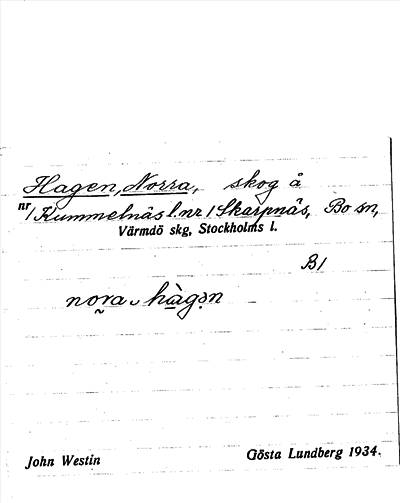 Hagen, Norra, skog å
nr 1 Kummelnäs l. nr 1 Skarpnäs, Bo sn,
Värmdö skg, Stockholms l.
B1
nora hàgən
John Westin
Gösta Lundberg 1934.